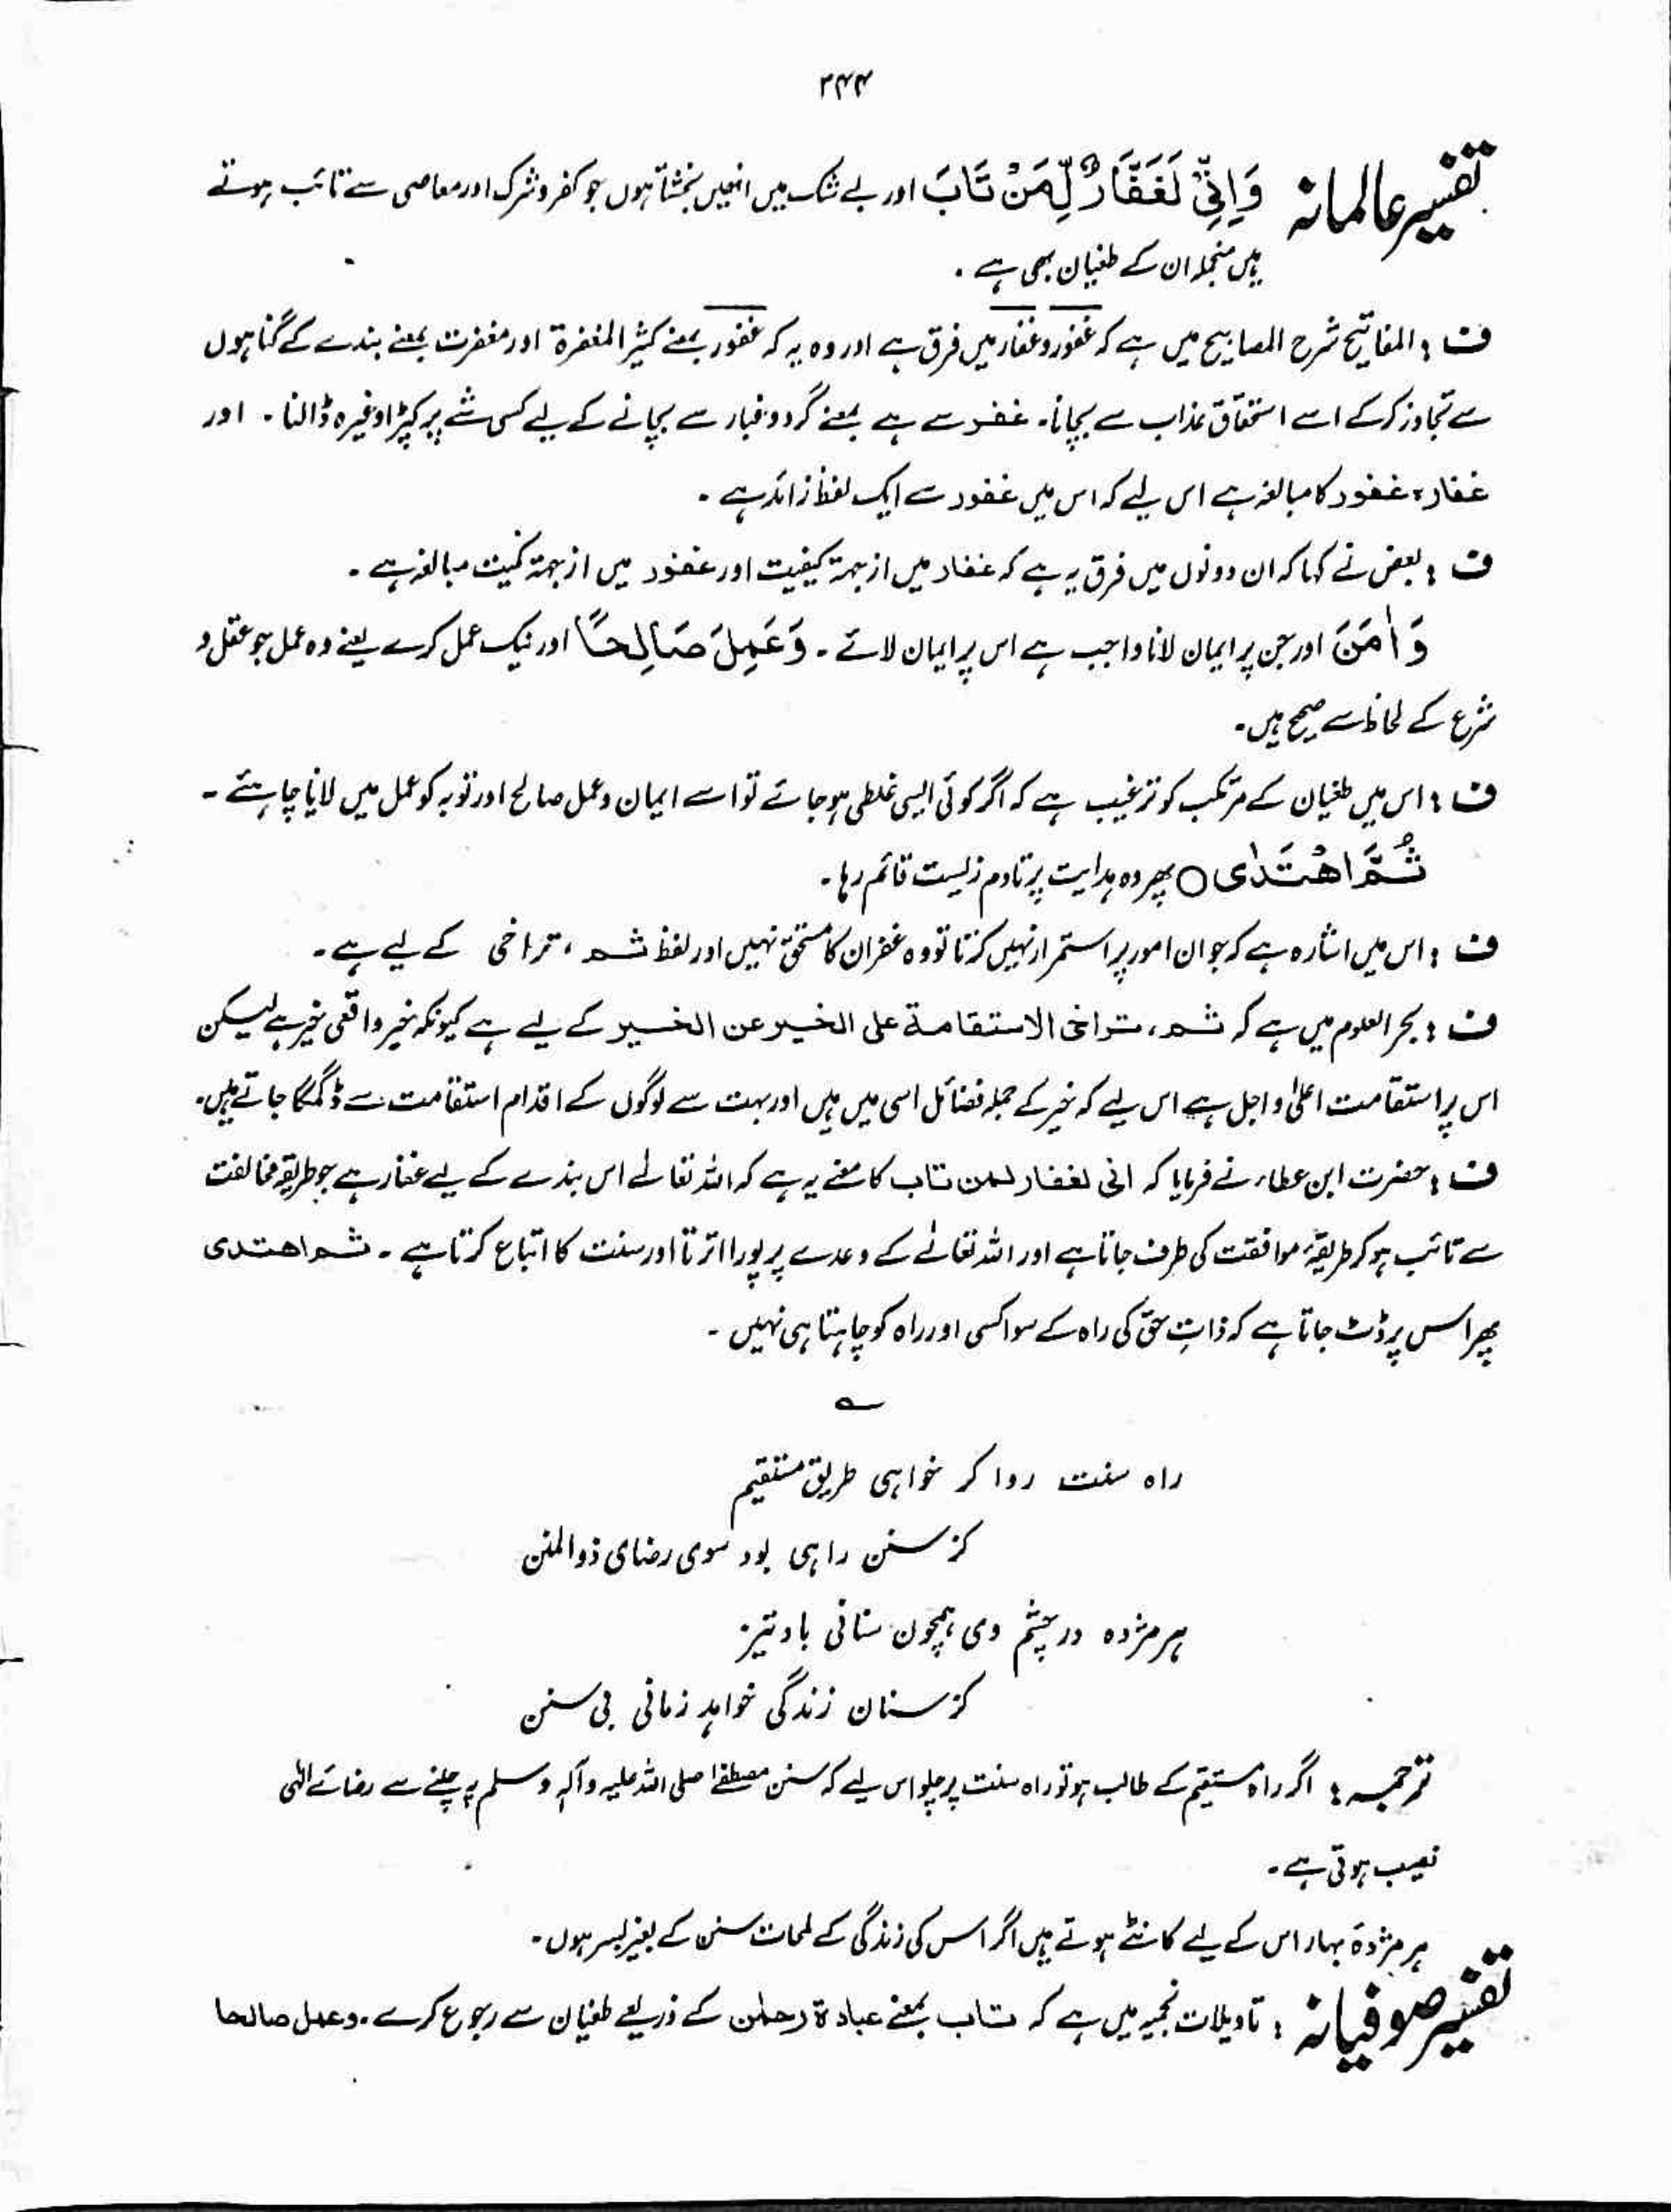 ۲۴۴
تفسیر عالمانہ وَاِنِّیْ لَغَفَّارٌ لِّمَنْ تَابَ اور بے شک میں انہیں بخشتا ہوں جو کفر و شرک اور معاصی سے تائب ہوتے
ہیں منجملہ ان کے طغیان بھی ہے ۔
ف : المفاتیح شرح المصابیح میں ہے کہ غفور و غفار میں فرق ہے اور وہ یہ کہ غفور بمعنے کثیر المغفرة اور مغفرت بمعنے بندے کے گناہوں
سے تجاوز کر کے اسے استحقاق عذاب سے بچانا۔ غفر سے ہے بمعنے گرد و غبار سے بچانے کے لیے کسی شے پر کپڑا وغیرہ ڈالنا ۔ اور
غفار، غفور کا مبالغہ ہے اس لیے کہ اس میں غفور سے ایک لفظ زائد ہے ۔
ف : بعض نے کہا کہ ان دونوں میں فرق یہ ہے کہ غفار میں از جہۃ کیفیت اور غفور میں از جہۃ کمیت مبالغہ ہے ۔
وَاٰمَنَ اور جن پر ایمان لانا واجب ہے اس پر ایمان لائے ۔ وَعَمِلَ صَالِحًا اور نیک عمل کرے یعنے وہ عمل جو عقل و
شرع کے لحاظ سے صحیح ہیں۔
ف : اس میں طغیان کے مرتکب کو ترغیب ہے کہ اگر کوئی ایسی غلطی ہو جائے تو اسے ایمان و عمل صالح اور توبہ کو عمل میں لانا چاہئے ۔
ثُمَّ اهْتَدٰی ○ پھر وہ ہدایت پر تادم زیست قائم رہا ۔
ف : اس میں اشارہ ہے کہ جو ان امور پر استمرار نہیں کرتا تو وہ غفران کا مستحق نہیں اور لفظ ثم ، تراخی کے لیے ہے ۔
ف : بحر العلوم میں ہے کہ ثم ، تراخی الاستقامة علی الخیر عن الخیر کے لیے ہے کیونکہ خیر واقعی خیر ہے لیکن
اس پر استقامت اعلیٰ و اجل ہے اس لیے کہ خیر کے جملہ فضائل اسی میں ہیں اور بہت سے لوگوں کے اقدام استقامت سے ڈگمگا جاتے ہیں۔
ف : حضرت ابن عطاء نے فرمایا کہ انی لغفار لمن تاب کا معنے یہ ہے کہ اللہ تعالےٰ اس بندے کے لیے غفار ہے جو طریقہ مخالفت
سے تائب ہو کر طریقۂ موافقت کی طرف جاتا ہے اور اللہ تعالےٰ کے وعدے پر پورا اترتا اور سنت کا اتباع کرتا ہے ۔ ثم اهتدی
پھر اس پر ڈٹ جاتا ہے کہ ذاتِ حق کی راہ کے سوا کسی اور راہ کو چاہتا ہی نہیں ۔
؎
راہ سنت روا کر خواہی طریق مستقیم
کز سنن راہی بود سوی رضای ذوالمنن
ہر مژدہ در چشم وی ہمچون سنانی باد تیز
کز سنان زندگی خواہد زمانی بی سنن
ترجمہ : اگر راہ مستقیم کے طالب ہو تو راہ سنت پر چلو اس لیے کہ سنن مصطفےٰ صلی اللہ علیہ وآلہٖ وسلم پہ چلنے سے رضائے الٰہی
نصیب ہوتی ہے ۔
ہر مژدۂ بہار اس کے لیے کانٹے ہوتے ہیں اگر اس کی زندگی کے لمحات سنن کے بغیر بسر ہوں ۔
تفسیر صوفیانہ : تاویلات نجمیہ میں ہے کہ تاب بمعنے عبادة رحمٰن کے ذریعے طغیان سے رجوع کرے ۔ وعمل صالحا